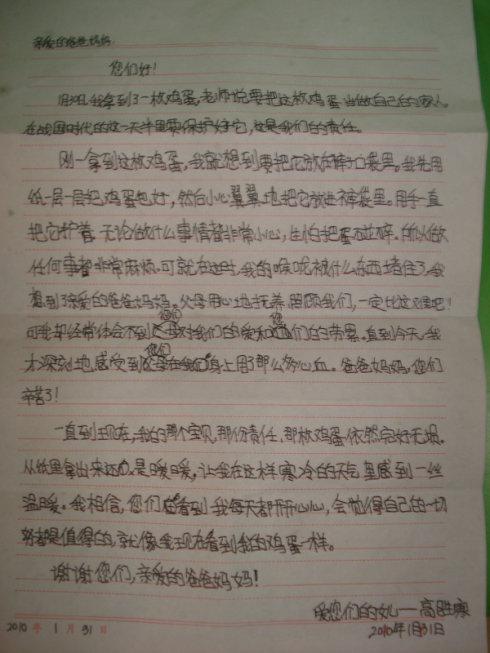 亲爱的爸爸妈妈：
您们好！
我拿到了一枚鸡蛋,老师说要把这枚鸡蛋当做自己的家人,
在 的这一天半里要保护好它,这是我们的责任。
刚一拿到这枚鸡蛋,我就想到要把它放在裤子口袋里。我先用
纸一层一层把鸡蛋包好,然后小心翼翼地把它放进裤袋里。用手一直
把它护着,无论做什么事情都非常小心,生怕把蛋碰碎。所以做
任何事都非常麻烦。可就在这时,我的喉咙被什么东西堵住了,我
想到了亲爱的爸爸妈妈。父母用心地抚养、照顾我们,一定比这难吧！
可我却经常体会不到您们对我们的爱和您们的劳累。直到今天,我
才深刻地感受到您们在我们身上用了那么多心血。爸爸妈妈,您们
辛苦了！
一直到现在,我的那个宝贝,那份责任,那枚鸡蛋依然完好无损。
从纸里拿出来还是暖暖,让我在这样寒冷的天气里感到一丝
温暖。我相信,您们在看到我每天都开开心心,会觉得自己的一切
努力都是值得的,就像我现在看到我的鸡蛋一样。
谢谢您们,亲爱的爸爸妈妈！
爱您们的女儿——高胜寒
2010年1月31日
2010年1月31日